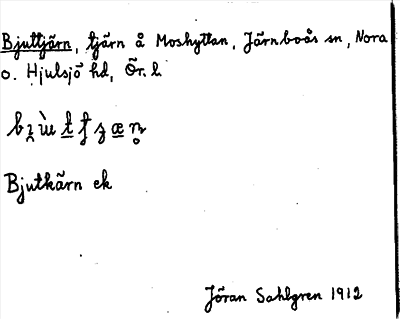 Bjuttjärn, tjärn å Moshyttan, Järnboås sn, Nora
o. Hjulsjö hd, Ör. l.
Bjutkärn ek
Jöran Sahlgren 1912